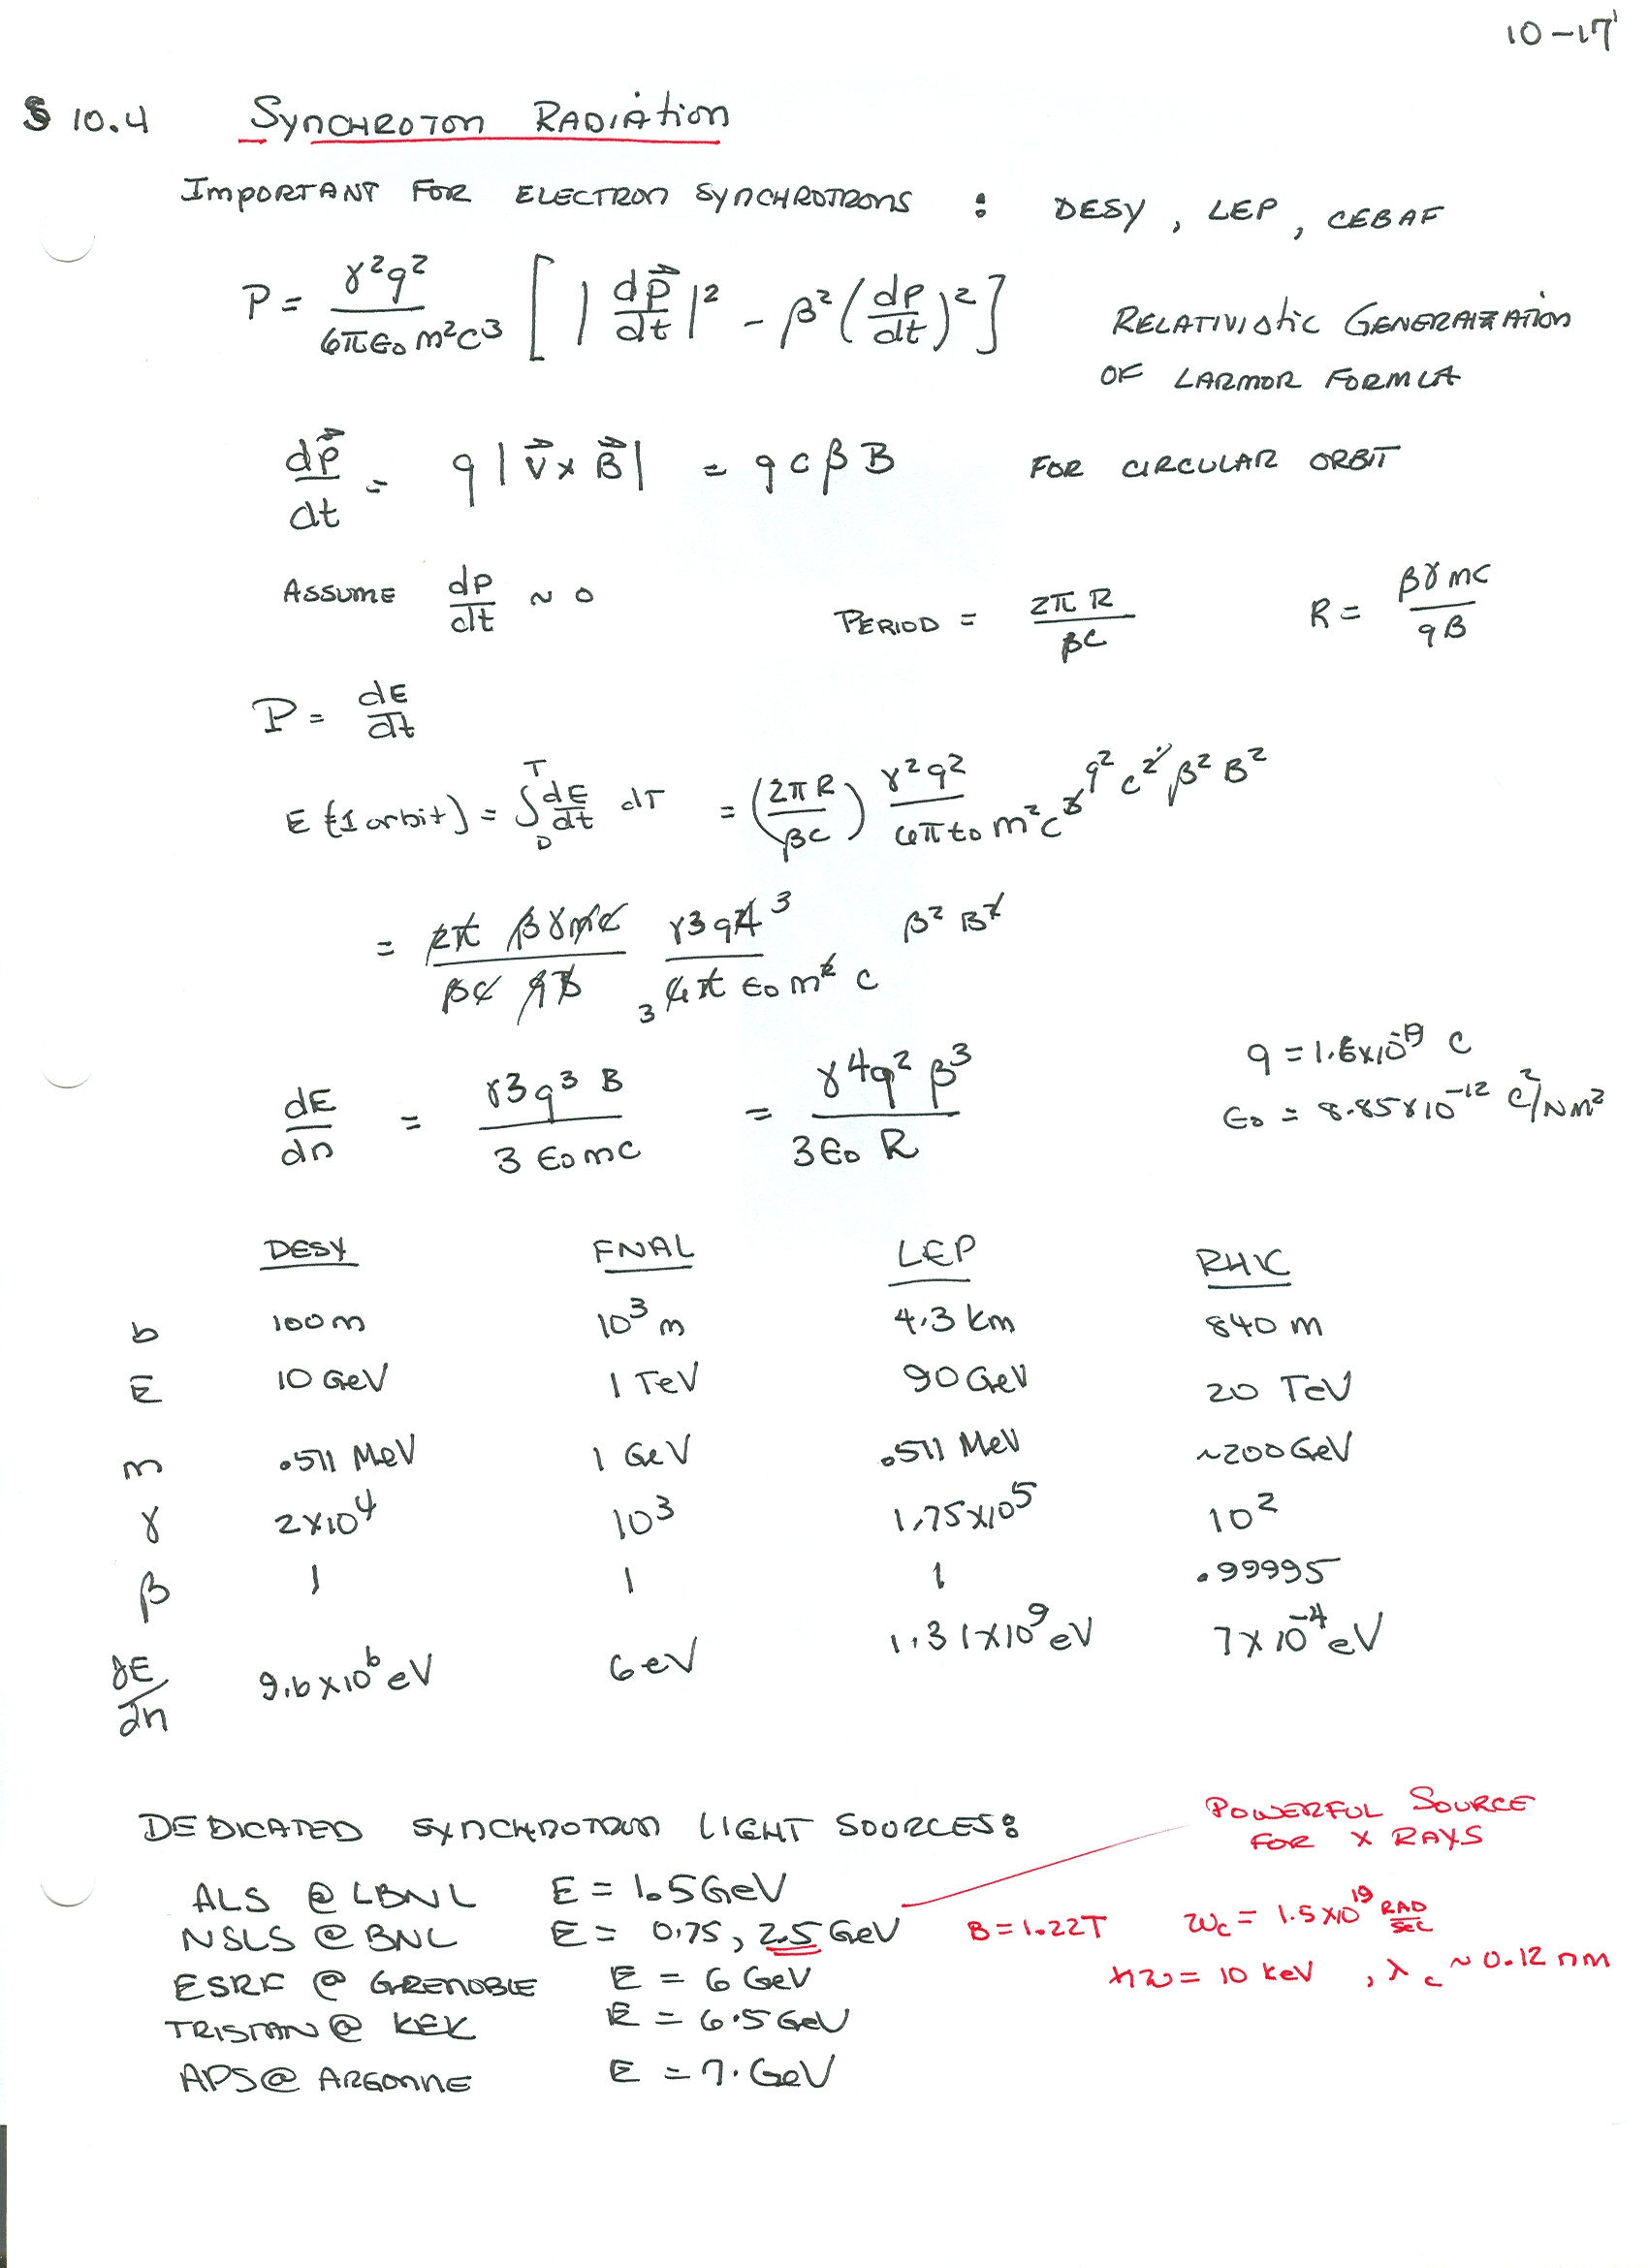 10-17
§ 10.4 SYNCHROTON RADIATION
IMPORTANT FOR ELECTRON SYNCHROTRONS : DESY, LEP, CEBAF
P = γ²q² / 6πε₀m²c³ [ |dp⃗/dt|² - β²(dp/dt)² ]
RELATIVISTIC GENERALIZATION
OF LARMOR FORMLA
dp⃗/dt = q|v⃗ x B⃗| = qcβB FOR CIRCULAR ORBIT
ASSUME dp/dt ~ 0 PERIOD = 2πR/βc R = βγmc/qB
P = dE/dt
E (1 orbit) = ∫₀ᵀ dE/dt dT = (2πR/βc) γ²q²/6πε₀m²c³ q²c²β²B²
= 2π βγmc / βc qB γ3q4 3 / 3 6π ε₀m² c β² B²
dE/dn = γ3q3 B / 3ε₀mc = γ4q²β³ / 3ε₀R
q = 1.6x10⁻¹⁹ C
ε₀ = 8.85x10⁻¹² C²/Nm²
DESY FNAL LEP RHIC
b 100m 10³ m 4.3 km 840 m
E 10 GeV 1 TeV 90 GeV 20 TeV
m .511 MeV 1 GeV .511 MeV ~200 GeV
γ 2x10⁴ 10³ 1.75x10⁵ 10²
β 1 1 1 .99995
dE/dn 9.6x10⁶ eV 6 eV 1.31x10⁹ eV 7x10⁻⁴ eV
DEDICATED SYNCHROTRON LIGHT SOURCES:
POWERFUL SOURCE
FOR X RAYS
ALS @ LBNL E = 1.5 GeV
NSLS @ BNL E = 0.75, 2.5 GeV B = 1.22T ωc = 1.5x10¹⁹ RAD/SEC
ESRF @ GRENOBLE E = 6 GeV ħω = 10 keV, λc ~ 0.12 nm
TRISTAN @ KEK E = 6.5 GeV
APS @ ARGONNE E = 7. GeV